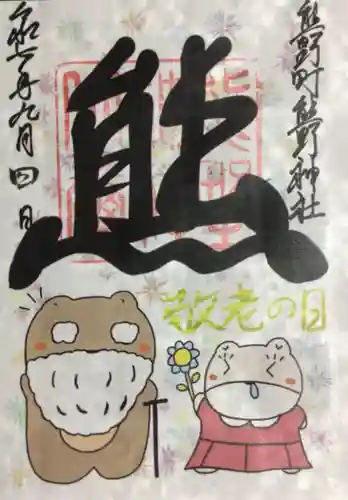 熊野町熊野神社
熊
令和二年九月四日
敬老の日